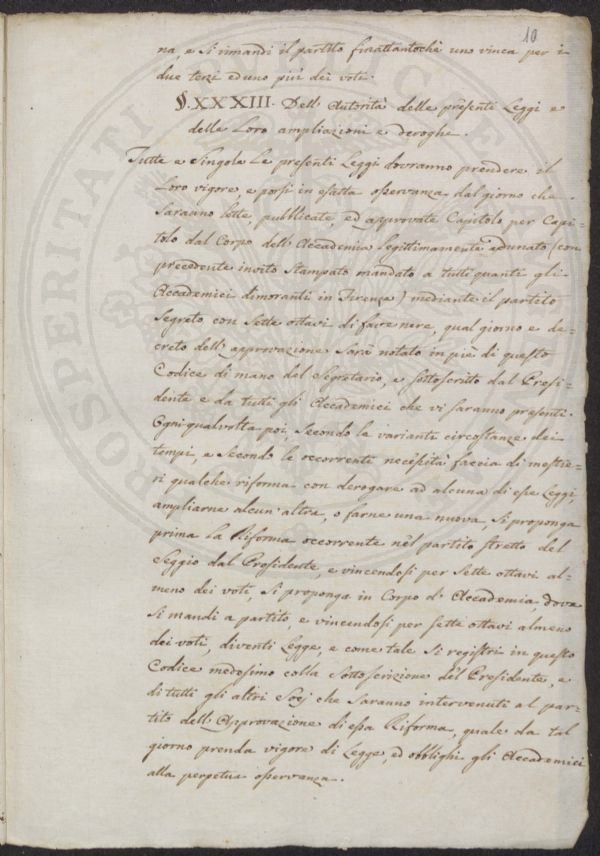 10
na, e si rimandi il partito finattantochè uno vinca per i
due terzi ed uno più dei voti.
§. XXXIII. Dell' Autorità delle presenti Leggi e
delle Loro ampliazioni e deroghe.
Tutte e Singole Le presenti Leggi dovranno prendere il
Loro vigore e porsi in esatta osservanza dal giorno che
saranno lette, pubblicate, ed approvate Capitolo per Capi=
tolo dal Corpo dell' Accademia Legittimamente adunato (con
precedente invito Stampato mandato a tutti quanti gli
Accademici dimoranti in Firenze) mediante il partito
Segreto con Sette ottavi di fave nere, qual giorno e de=
creto dell' approvazione sarà notato in piè di questo
Codice di mano del Segretario, e sottoscritto dal Presi=
dente e da tutti gli Accademici che vi saranno presenti.
Ogniqualvolta poi, secondo le varianti circostanze dei
tempi, e secondo le occorrenti necessità faccia di mestie=
ri qualche riforma con derogare ad alcuna di esse Leggi,
ampliarne alcun' altra, o farne una nuova, si proponga
prima la Riforma occorrente nel partito stretto del
Seggio dal Presidente, e vincendosi per sette ottavi al=
meno dei voti, si proponga in Corpo d' Accademia, dove
si mandi a partito, e vincendosi per sette ottavi almeno
dei voti, diventi Legge, e come tale si registri in questo
Codice medesimo colla Sottoscrizione del Presidente, e
di tutti gli altri Socj che saranno intervenuti al par=
tito dell' Approvazione di essa Riforma, quale da tal
giorno prenda vigore di Legge, ed obblighi gli Accademici
alla perpetua osservanza.
PROSPERITATI PUBLICAE